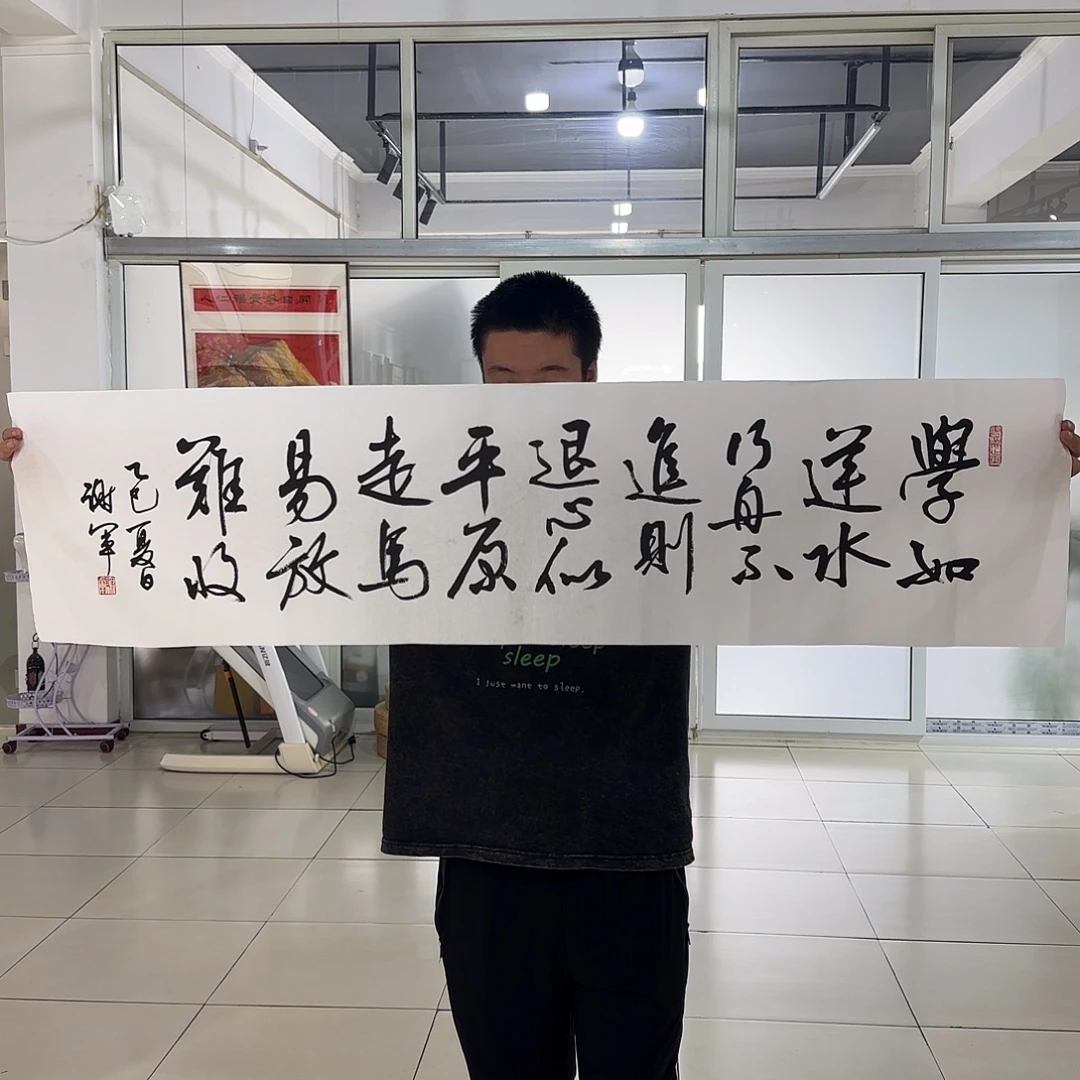 學如
逆水
行舟不
進則
退心似
平原
走馬
易放
難收
乙巳夏日
谢軍
sleep
I just want to sleep.